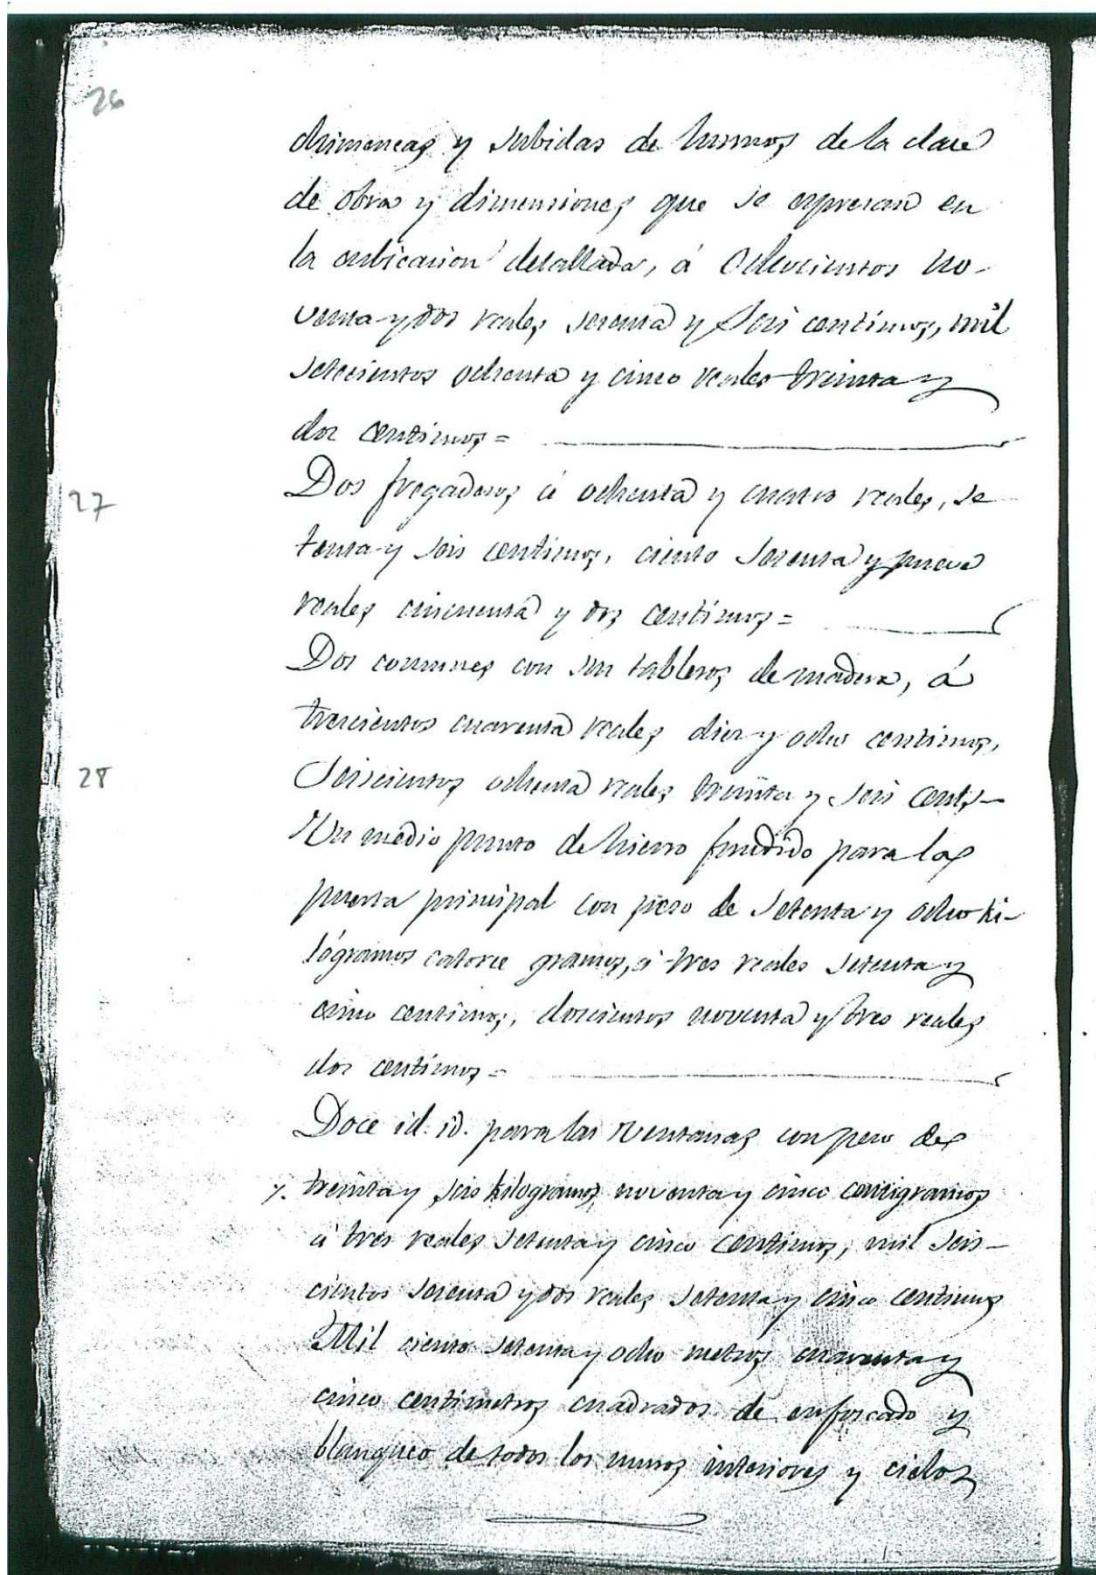 26
chimeneas y subidas de humos de la clase
de obra y dimensiones que se expresan en
la cubicacion detallada, á Ochocientos no-
venta y dos reales sesenta y Seis centimos, mil
setecientos ochenta y cinco reales treinta y
dos centimos =
27
Dos fregaderos á ochenta y cuatro reales, se
tenta y seis centimos, ciento sesenta y nueve
reales cincuenta y dos centimos =
Dos comunes con sus tableros de madera, á
trescientos cuarenta reales diez y ocho centimos,
28
Seiscientos ochenta reales treinta y seis cents-
Un medio punto de hierro fundido para la
puerta principal con peso de setenta y ocho ki-
lógramos catorce gramos, á tres reales setenta y
cinco centimos, doscientos noventa y tres reales
dos centimos =
Doce id. id. para las Ventanas con peso de
y. treinta y seis kilogramos noventa y cinco centigramos
á tres reales setenta y cinco centimos, mil seis-
cientos sesenta y dos reales setenta y cinco centimos
Mil ciento setenta y ocho metros cuarenta y
cinco centimetros cuadrados de enfoscado y
blanqueo de todos los muros interiores y cielos